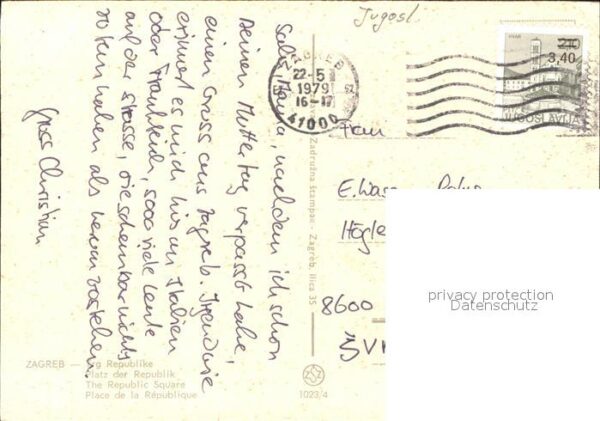 Jugosl.
ZAGREB
22-5
1979
16-17
41000
HVAR
2,10
3,40
JUGOSLAVIJA
Salü Mama, nachdem ich schon
Deinen Muttertag verpasst habe,
einen Gruss aus Zagreb. Irgendwie
erinnert es mich hier an Italien
oder Frankreich, sooo viele Leute
auf der Strasse, die scheinbar nichts
zu tun haben als herum zustehen.
Gruss Christian
Frau
E. Wase
Högle
8600
privacy protection
Datenschutz
Zadružna štampa - Zagreb, Ilica 35
1023/4
ZAGREB — Trg Republike
Platz der Republik
The Republic Square
Place de la République